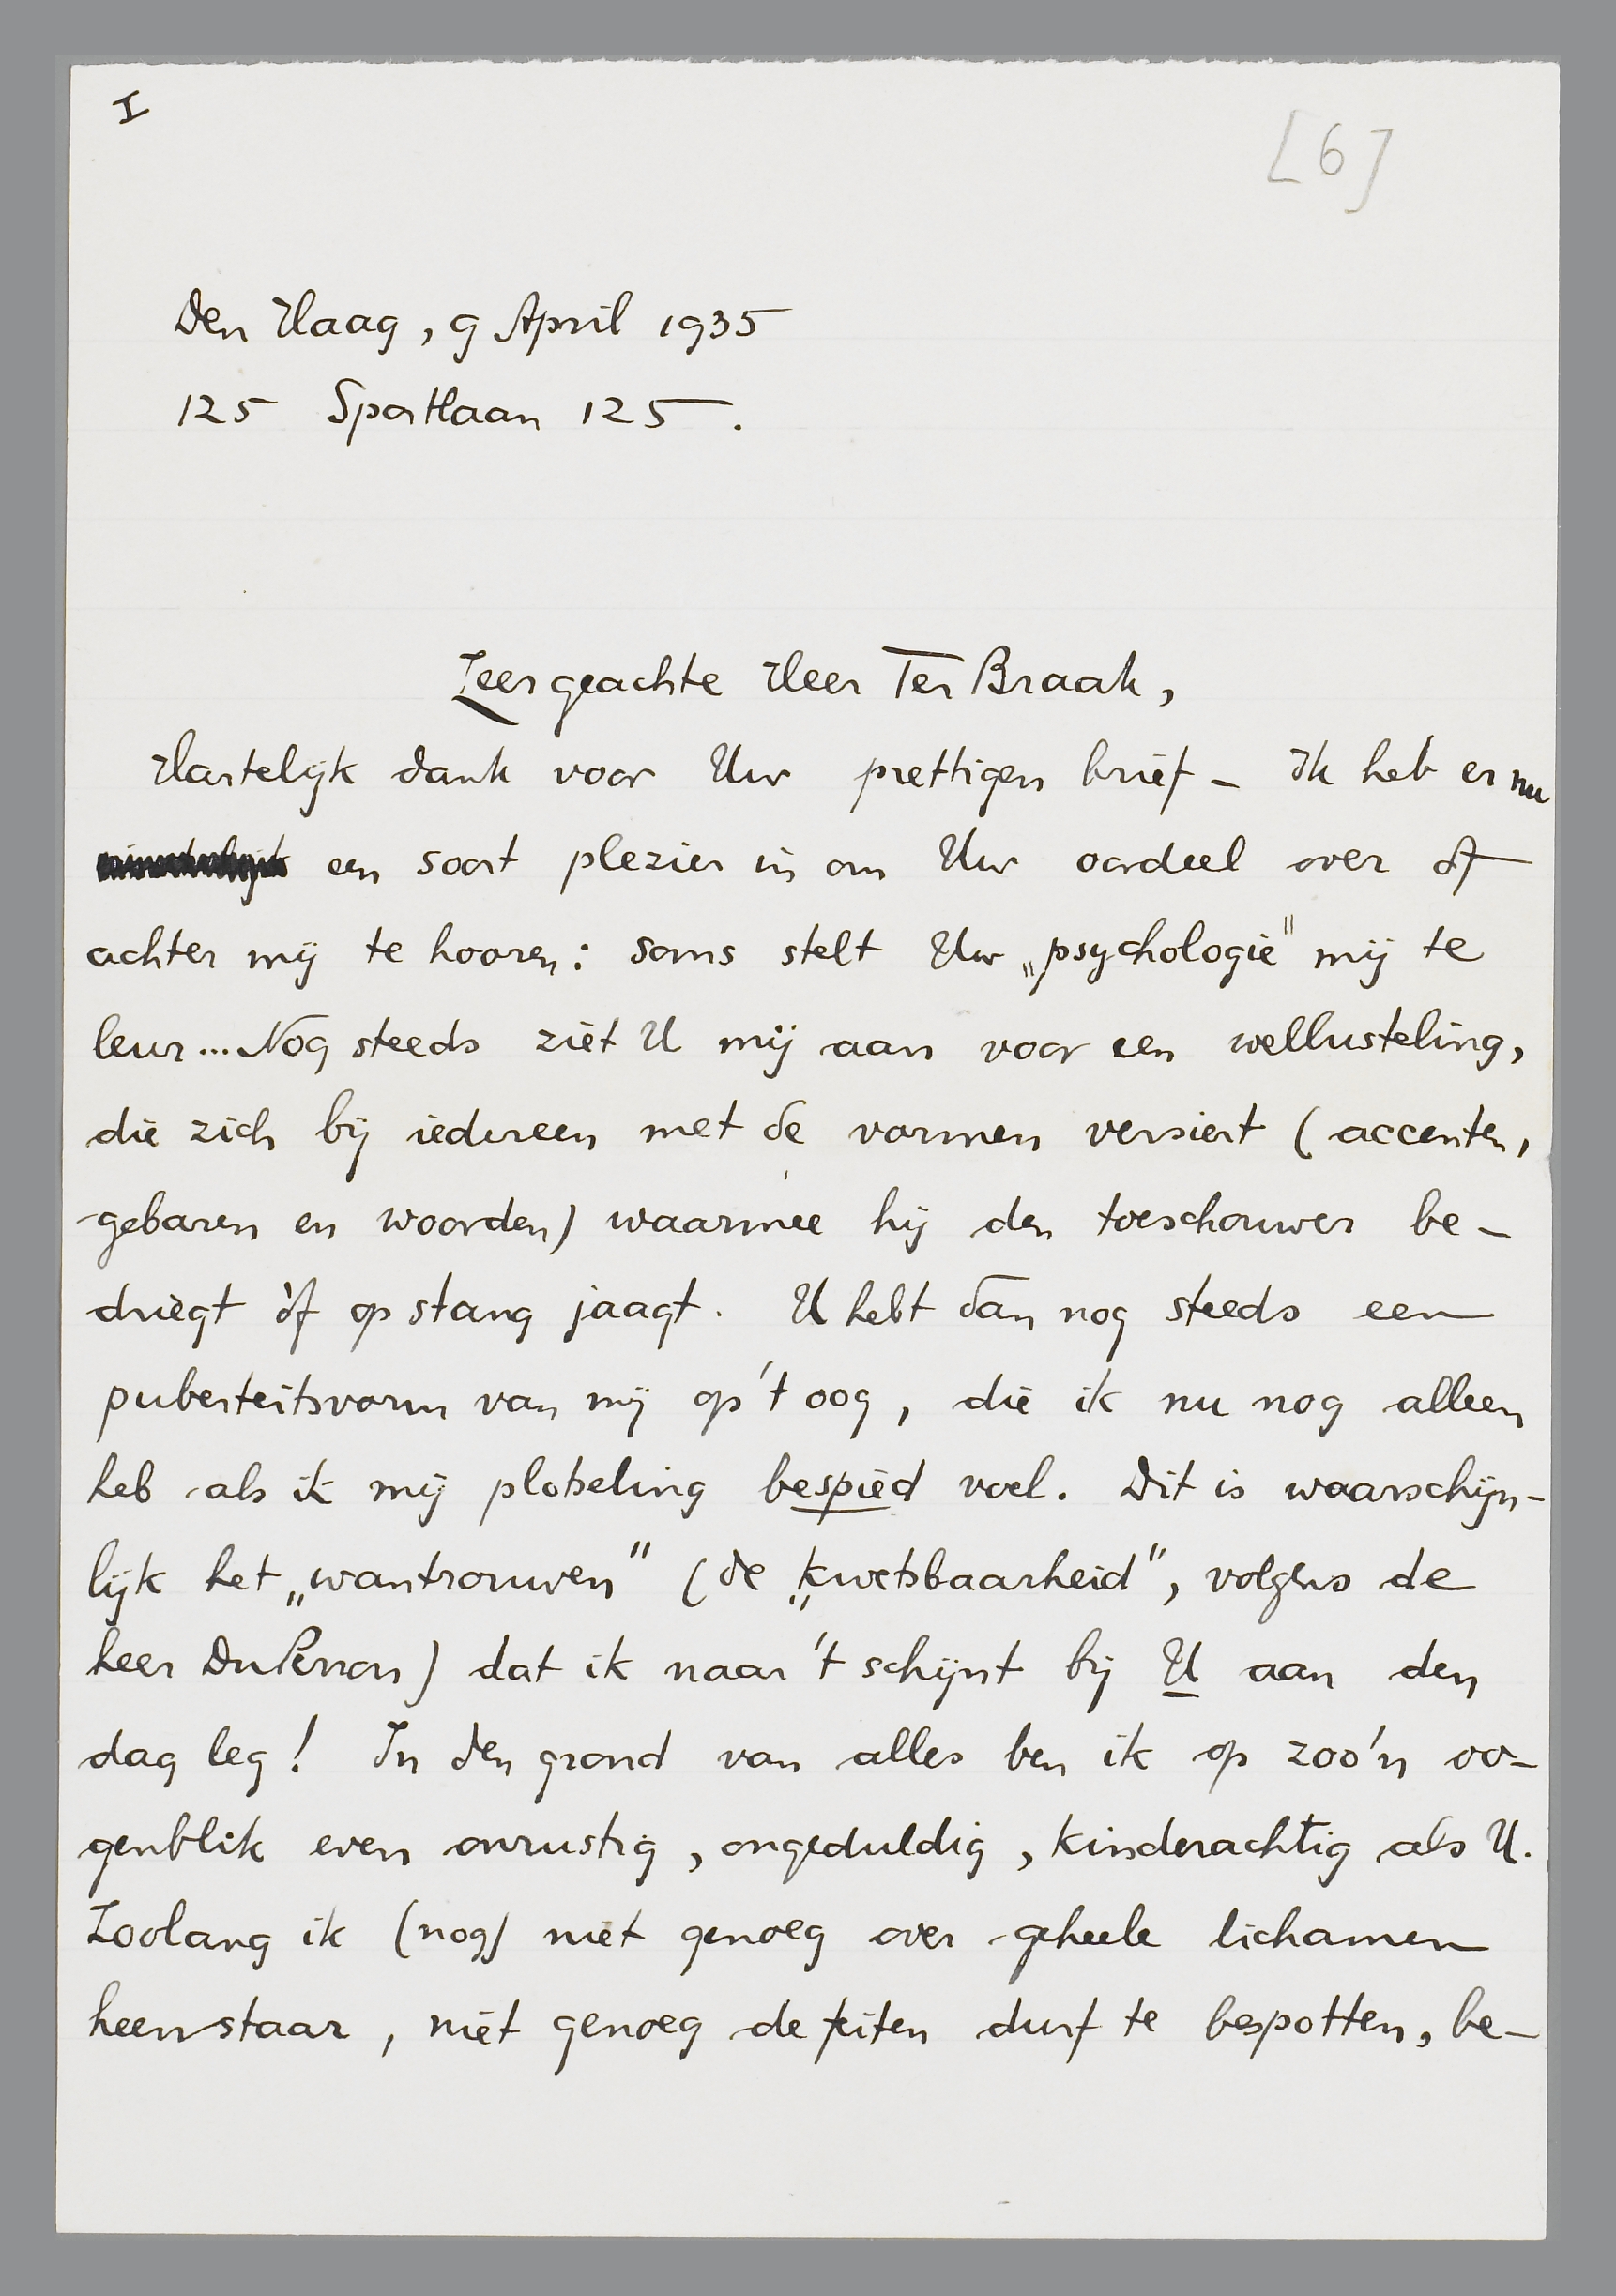 I
[6]
Den Haag, 9 April 1935
125 Sportlaan 125.
Zeer geachte Heer Ter Braak,
Hartelijk dank voor Uw prettigen brief – Ik heb er nu
een soort plezier in om Uw oordeel over of
achter mij te hooren: soms stelt Uw „psychologie" mij te
leur... Nog steeds ziet U mij aan voor een wellusteling,
die zich bij iedereen met de vormen versiert (accenten,
gebaren en woorden) waarmee hij den toeschouwer be-
driegt òf op stang jaagt. U hebt dan nog steeds een
puberteitsvorm van mij op 't oog, die ik nu nog alleen
heb als ik mij plotseling bespied voel. Dit is waarschijn-
lijk het „wantrouwen" (de „kwetsbaarheid", volgens de
heer DuPerron) dat ik naar 't schijnt bij U aan den
dag leg! In den grond van alles ben ik op zoo'n oo-
genblik even onrustig, ongeduldig, kinderachtig als U.
Zoolang ik (nog) niet genoeg over geheele lichamen
heenstaar, niet genoeg de feiten durf te bespotten, be-